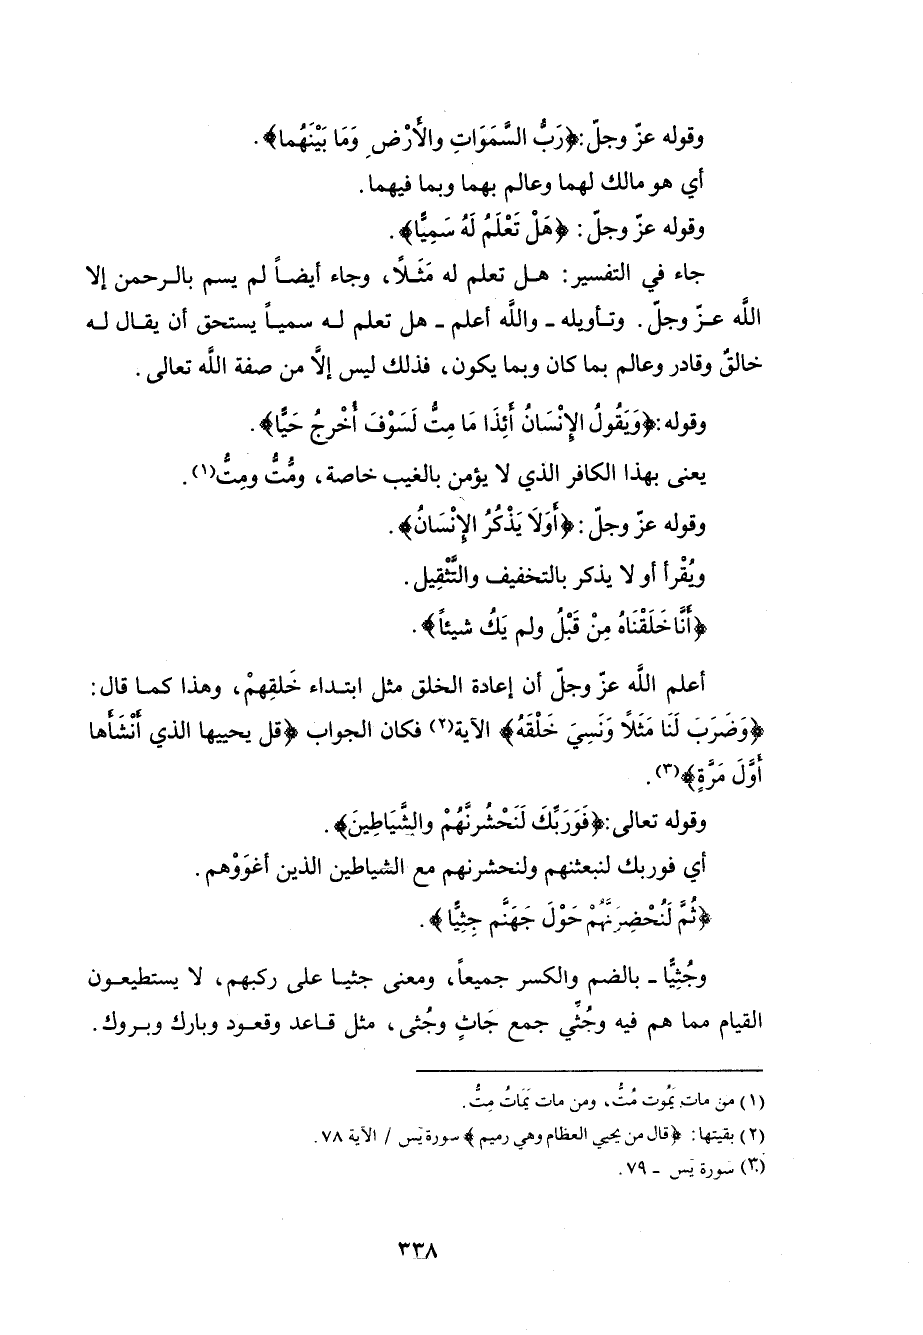 وقوله عزّ وجلّ: ﴿رَبُّ السَّمَوَاتِ والأَرْضِ وَمَا بَيْنَهُما﴾.
أي هو مالك لهما وعالم بهما وبما فيهما.
وقوله عزّ وجلّ: ﴿هَلْ تَعْلَمُ لَهُ سَمِيًّا﴾.
جاء في التفسير: هل تعلم له مَثَلاً، وجاء أيضاً لم يسم بالرحمن إلا
اللَّه عزّ وجلّ. وتأويله ـ واللَّه أعلم ـ هل تعلم له سمياً يستحق أن يقال له
خالقٌ وقادر وعالم بما كان وبما يكون، فذلك ليس إلَّا من صفة اللَّه تعالى.
وقوله: ﴿وَيَقُولُ الإِنْسَانُ أَئِذَا مَا مِتُّ لَسَوْفَ أُخْرجُ حَيًّا﴾.
يعنى بهذا الكافر الذي لا يؤمن بالغيب خاصة، ومُتُّ ومِتُّ(١).
وقوله عزّ وجلّ: ﴿أَوَلَا يَذْكُرُ الإِنْسَانُ﴾.
ويُقْرأ أو لا يذكر بالتخفيف والتَّثْقِيل.
﴿أَنَّا خَلَقْنَاهُ مِنْ قَبْلُ ولم يَكُ شيئاً﴾.
أعلم اللَّه عزّ وجلّ أن إعادة الخلق مثل ابتداء خَلقِهِمْ، وهذا كما قال:
﴿وَضَرَبَ لَنَا مَثَلاً وَنَسِيَ خَلْقَهُ﴾ الآية(٢) فكان الجواب ﴿قل يحييها الذي أَنْشَأَها
أَوَّلَ مَرَّةٍ﴾(٣).
وقوله تعالى: ﴿فَوَرَبِّكَ لَنَحْشُرنَّهُمْ والشَّيَاطِينَ﴾.
أي فوربك لنبعثنهم ولنحشرنهم مع الشياطين الذين أغوَوْهم.
﴿ثُمَّ لَنُحْضِرَنَّهُمْ حَوْلَ جَهَنَّم جِثِيًّا﴾.
وجُثِيًّا ـ بالضم والكسر جميعاً، ومعنى جثيا على ركبهم، لا يستطيعون
القيام مما هم فيه وجُثِّي جمع جَاثٍ وجُثى، مثل قاعد وقعود وبارك وبروك.
(١) من مات يَمُوت مُتُّ، ومن مات يَمَاتُ مِتُّ.
(٢) بقيتها: ﴿قال من يحيي العظام وهي رميم﴾ سورة يَس / الآية ٧٨.
(٣) سورة يَس ـ ٧٩.
٣٣٨